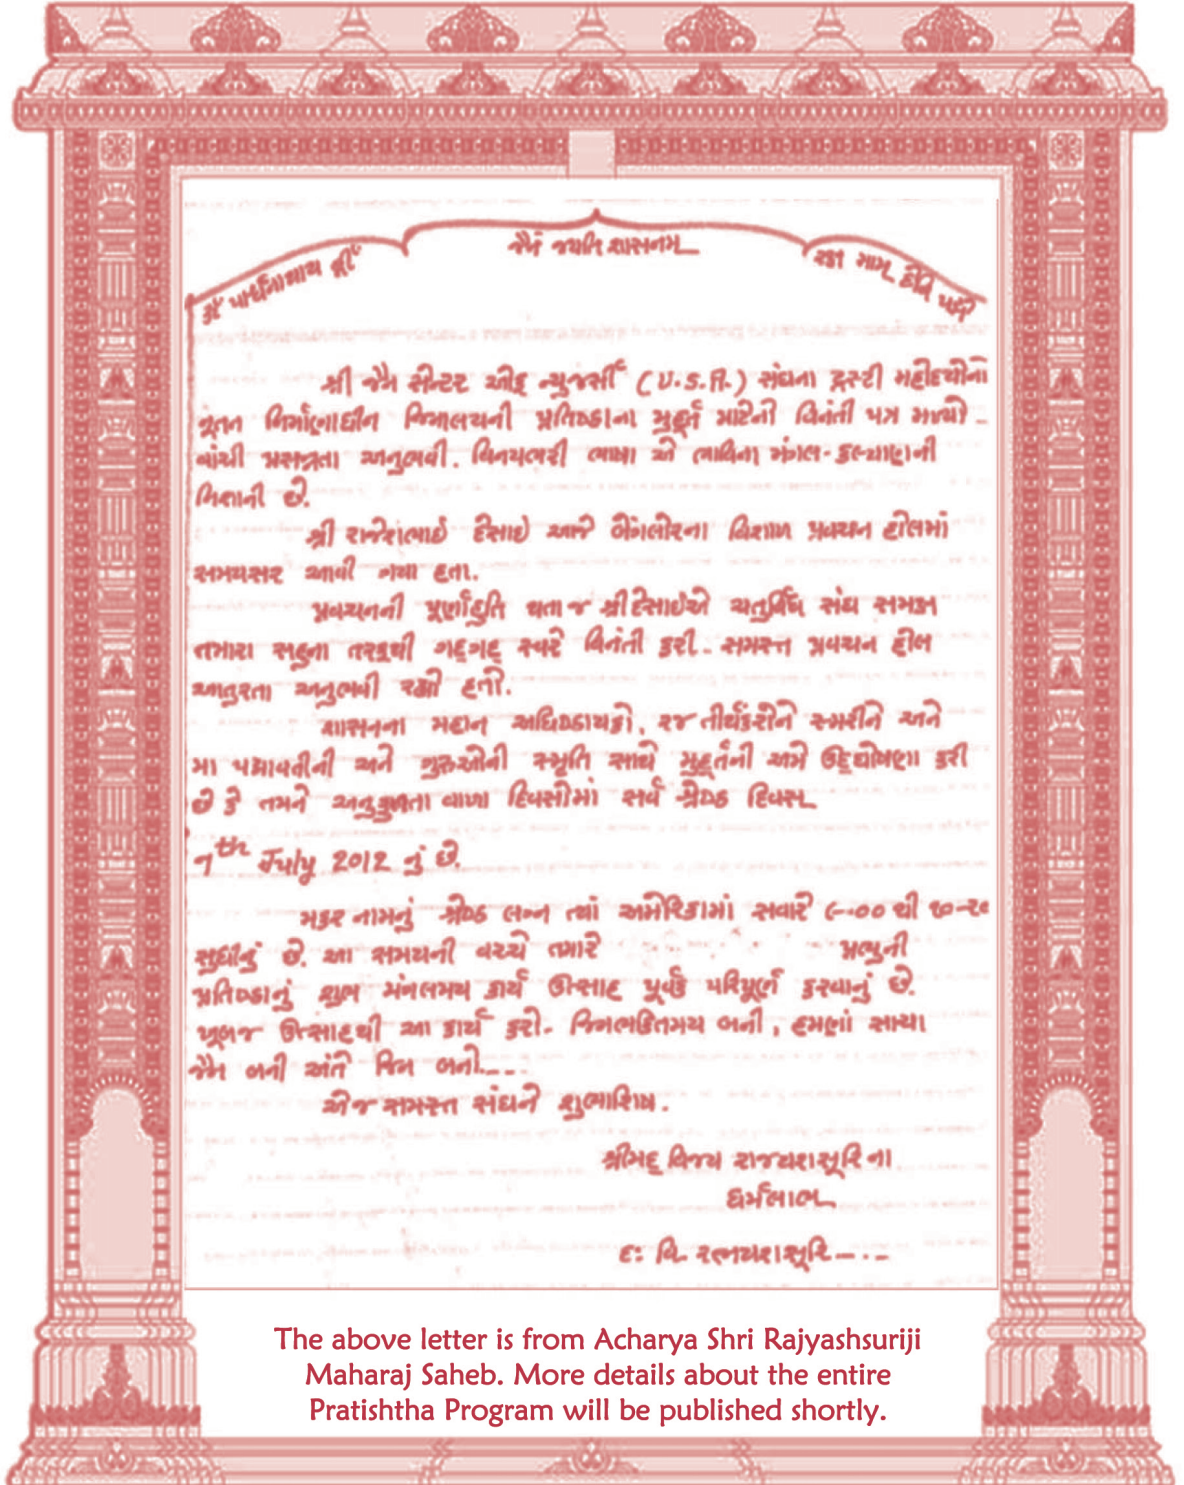 ૐ પાર્શ્વનાથાય હ્રીઁ
જૈનં જયતિ શાસનમ્
રક્ષ મામ્ દેવિ પદ્મે
શ્રી જૈન સેન્ટર ઓફ ન્યુજર્સી (U.S.A.) સંઘના ટ્રસ્ટી મહોદયોનો
નૂતન નિર્માણાધીન જિનાલયની પ્રતિષ્ઠાના મુહૂર્ત માટેનો વિનંતી પત્ર મળ્યો -
વાંચી પ્રસન્નતા અનુભવી. વિનયભરી ભાષા એ ભાવિના મંગલ-કલ્યાણની
નિશાની છે.
શ્રી રાજેશભાઇ દેસાઇ આજે બેંગલોરના વિશાળ પ્રવચન હોલમાં
સમયસર આવી ગયા હતા.
પ્રવચનની પૂર્ણાહુતિ થતા જ શ્રી દેસાઇએ ચતુર્વિધ સંઘ સમક્ષ
તમારા સહુના તરફથી ગદ્દગદ્ સ્વરે વિનંતી કરી - સમસ્ત પ્રવચન હોલ
આતુરતા અનુભવી રહ્યો હતો.
શાસનના મહાન અધિષ્ઠાયકો, ૨૪ તીર્થંકરોને સ્મરીને અને
મા પદ્માવતીની અને ગુરુઓની સ્મૃતિ સાથે મુહૂર્તની અમે ઉદ્દઘોષણા કરી
છે કે તમને અનુકુળતા વાળા દિવસોમાં સર્વ શ્રેષ્ઠ દિવસ
૧th July 2012 નું છે.
મકર નામનું શ્રેષ્ઠ લગ્ન ત્યાં અમેરિકામાં સવારે ૯-૦૦ થી ૧૦-૨૦
સુધીનું છે. આ સમયની વચ્ચે તમારે પ્રભુની
પ્રતિષ્ઠાનું શુભ મંગલમય કાર્ય ઉત્સાહ પૂર્વક પરિપૂર્ણ કરવાનું છે.
ખૂબજ ઉત્સાહથી આ કાર્ય કરો- જિનભક્તિમય બની, હમણાં સાચા
જૈન બની અંતે જિન બનો....
એજ સમસ્ત સંઘને શુભાશિષ.
શ્રીમદ્ વિજય રાજયશસૂરિ ના
ધર્મલાભ
દઃ વિ. રત્નયશસૂરિ -.-
The above letter is from Acharya Shri Rajyashsuriji
Maharaj Saheb. More details about the entire
Pratishtha Program will be published shortly.